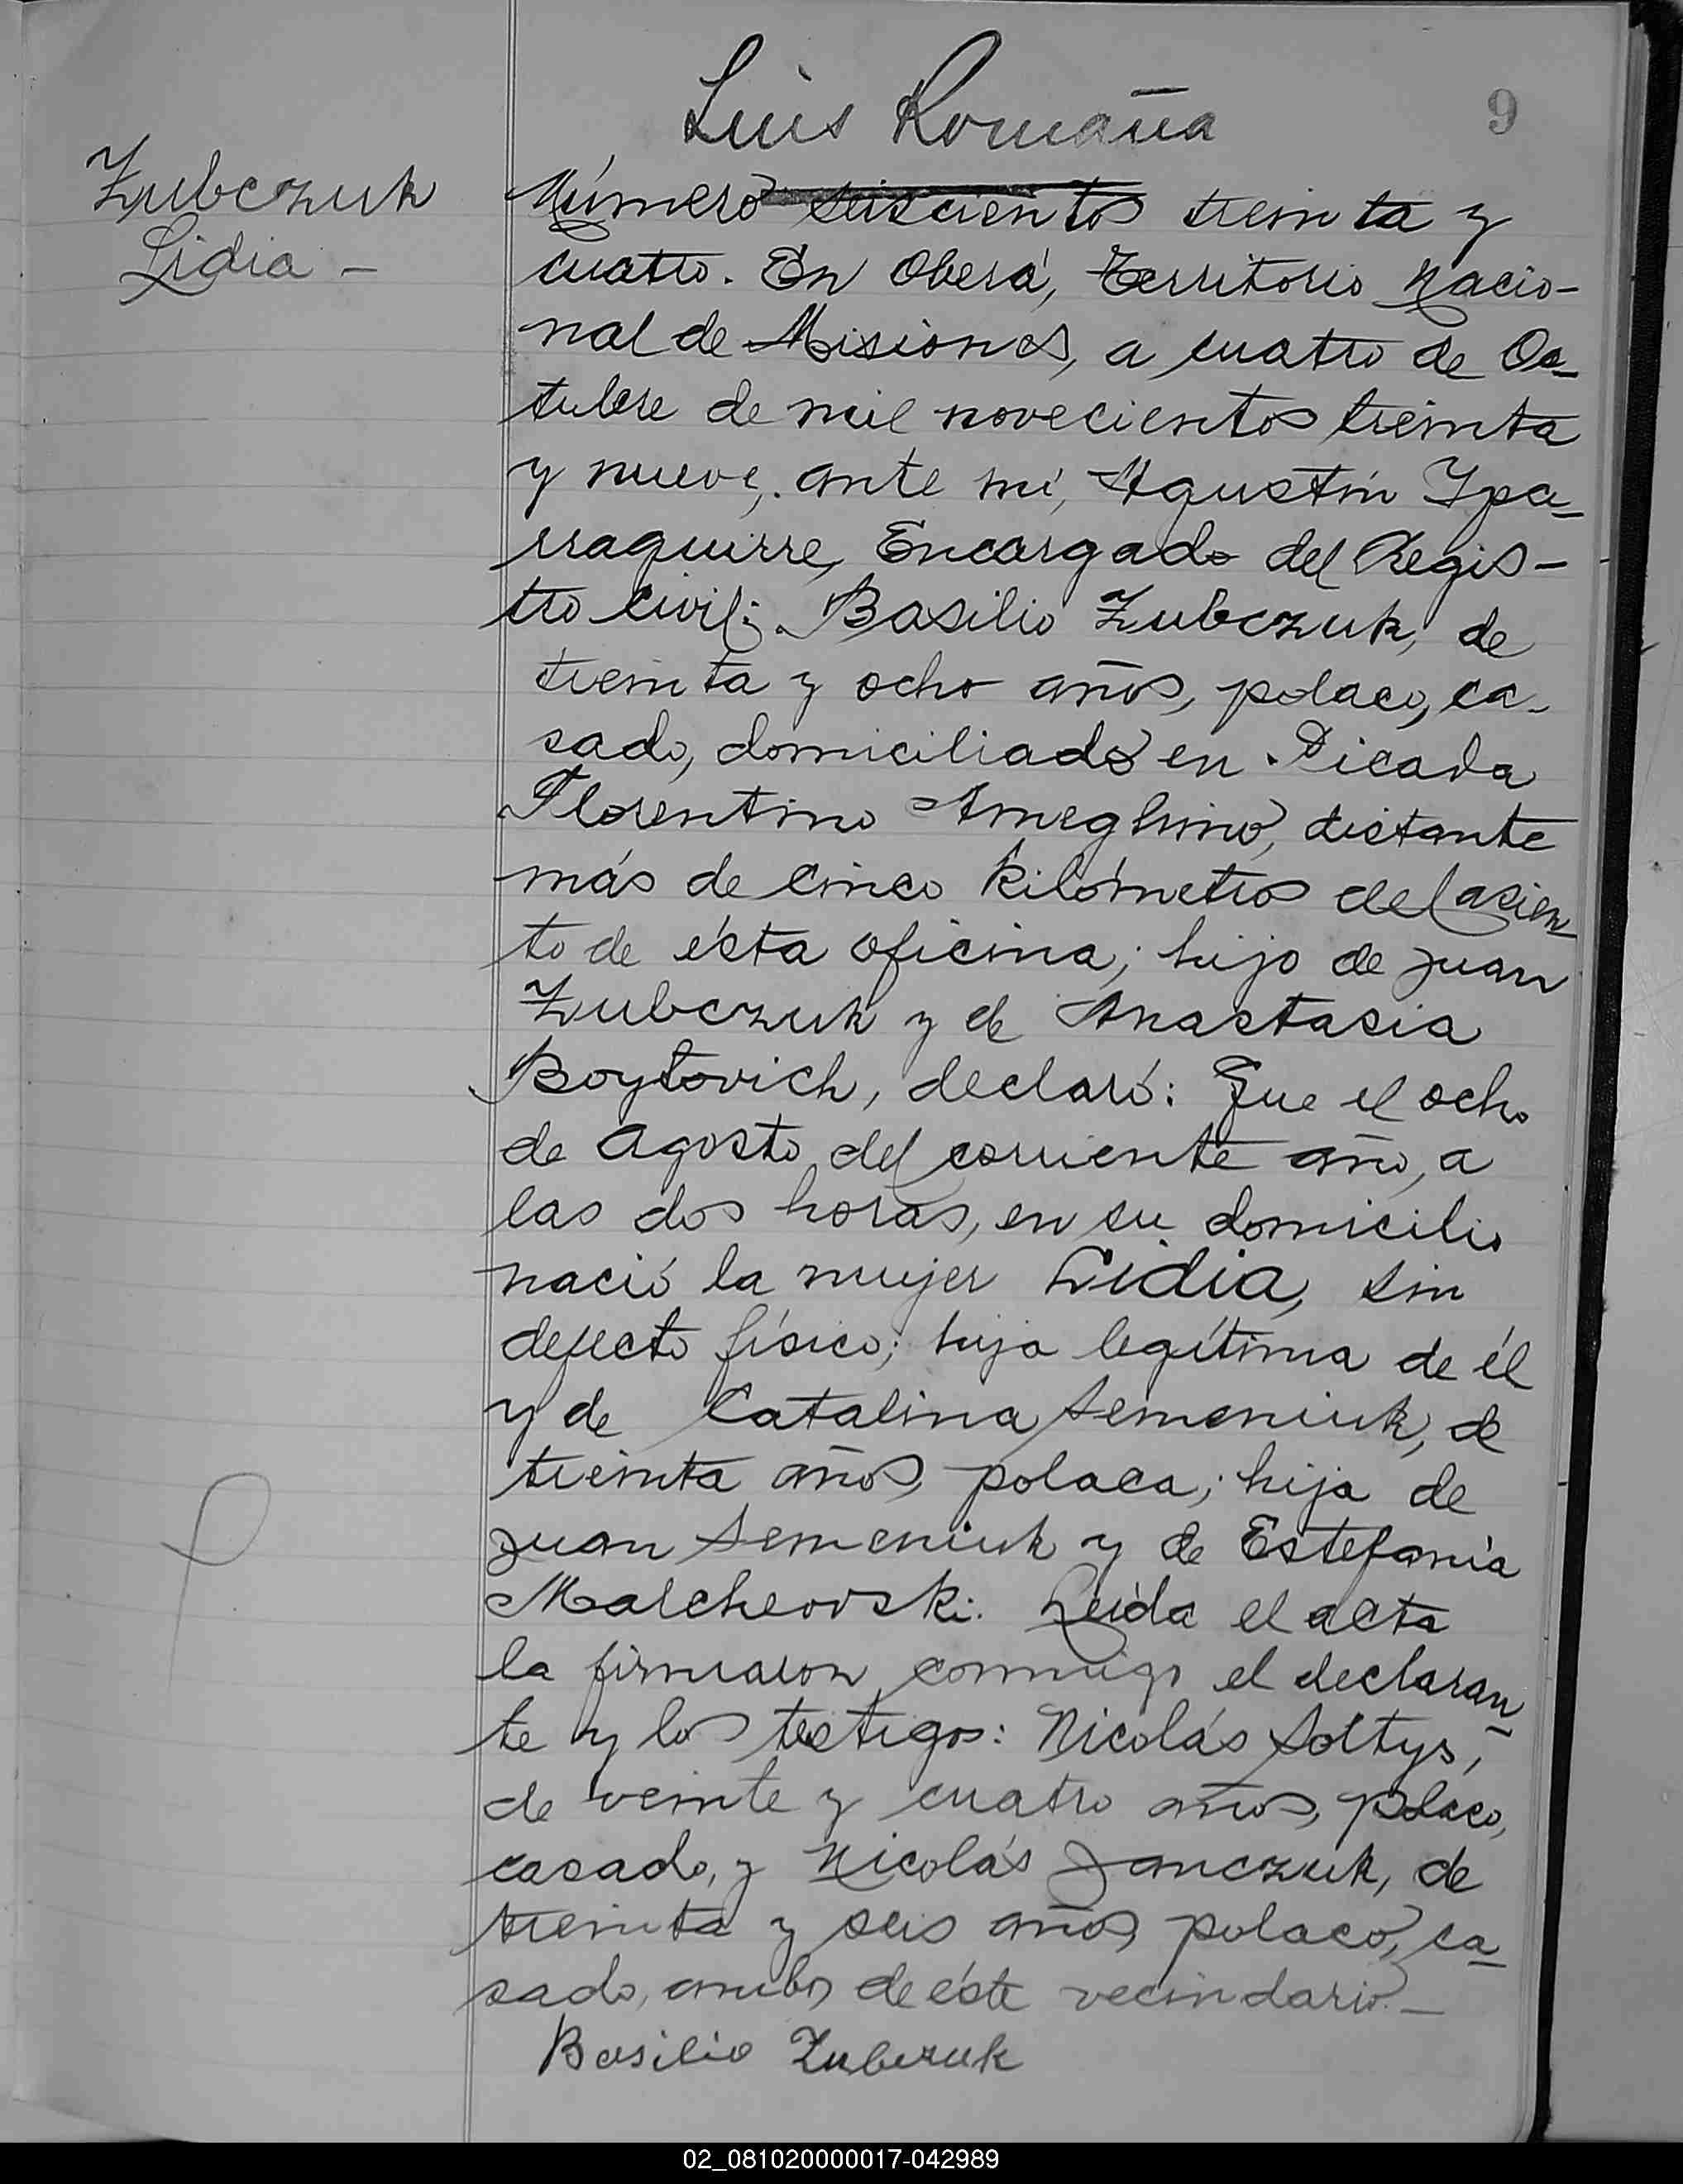 Luis Romaña
9
Zubczuk
Lidia -
Número seiscientos treinta y
cuatro. En Oberá, Territorio Nacio-
nal de Misiones, a cuatro de Oc-
tubre de mil novecientos treinta
y nueve, ante mí, Agustín Ypa-
rraguirre, Encargado del Regis-
tro Civil: Basilio Zubczuk, de
treinta y ocho años, polaco, ca-
sado, domiciliado en Picada
Florentino Ameghino, distante
más de cinco kilómetros del asien-
to de ésta oficina; hijo de Juan
Zubczuk y de Anastasia
Boytovich, declaró: Que el ocho
de Agosto del corriente año, a
las dos horas, en su domicilio
nació la mujer Lidia, sin
defecto físico; hija legítima de él
y de Catalina Semeniuk, de
treinta años, polaca; hija de
Juan Semeniuk y de Estefanía
Malchevski. Leída el acta
la firmaron conmigo el declaran-
te y los testigos: Nicolás Soltys,
de veinte y cuatro años, polaco,
casado, y Nicolás Janczuk, de
treinta y seis años, polaco, ca-
sado, ambos de éste vecindario.-
Basilio Zubczuk
02_081020000017-042989